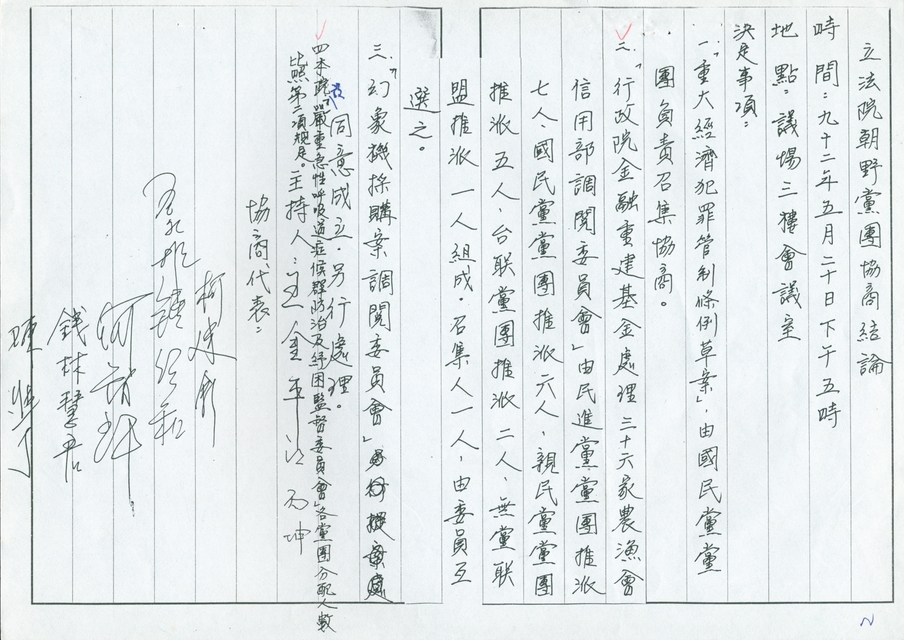 立法院朝野黨團協商結論
時間：九十二年五月二十日下午五時
地點：議場三樓會議室
決定事項：
一、「重大經濟犯罪管制條例草案」，由國民黨黨
團負責召集協商。
二、「行政院金融重建基金處理三十六家農漁會
信用部調閱委員會」由民進黨黨團推派
七人、國民黨黨團推派六人、親民黨黨團
推派五人、台聯黨團推派二人、無黨聯
盟推派一人組成。召集人一人，由委員互
選之。
三、「幻象機採購案調閱委員會」
同意成立。另行處理。
四、本院「嚴重急性呼吸道症候群防治及紓困監督委員會」各黨團分配人數
比照第二項規定。
主持人：王金平 江丙坤
協商代表：
柯建銘
錢林慧君
2